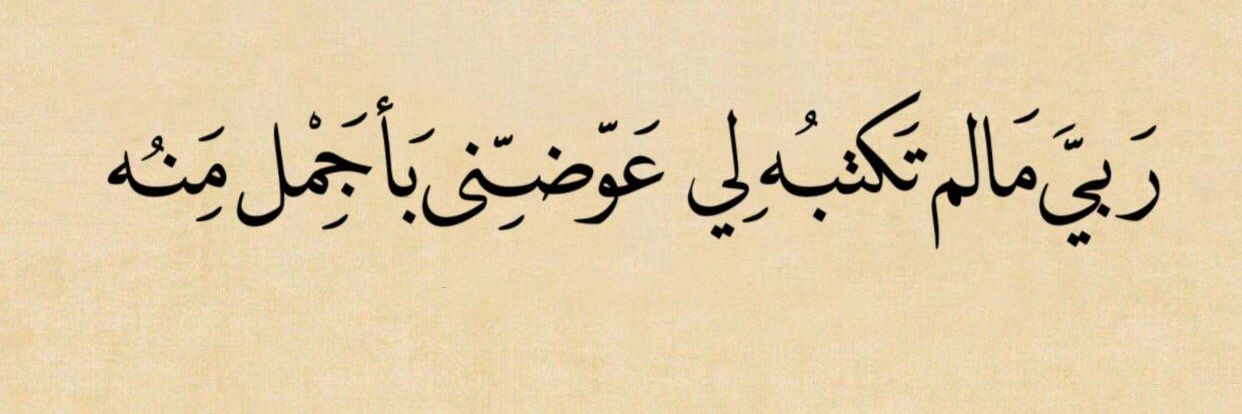 رَبيَّ مَالم تَكتبُه لِي عَوّضنِّى بَأجَمِْل مَِنُه